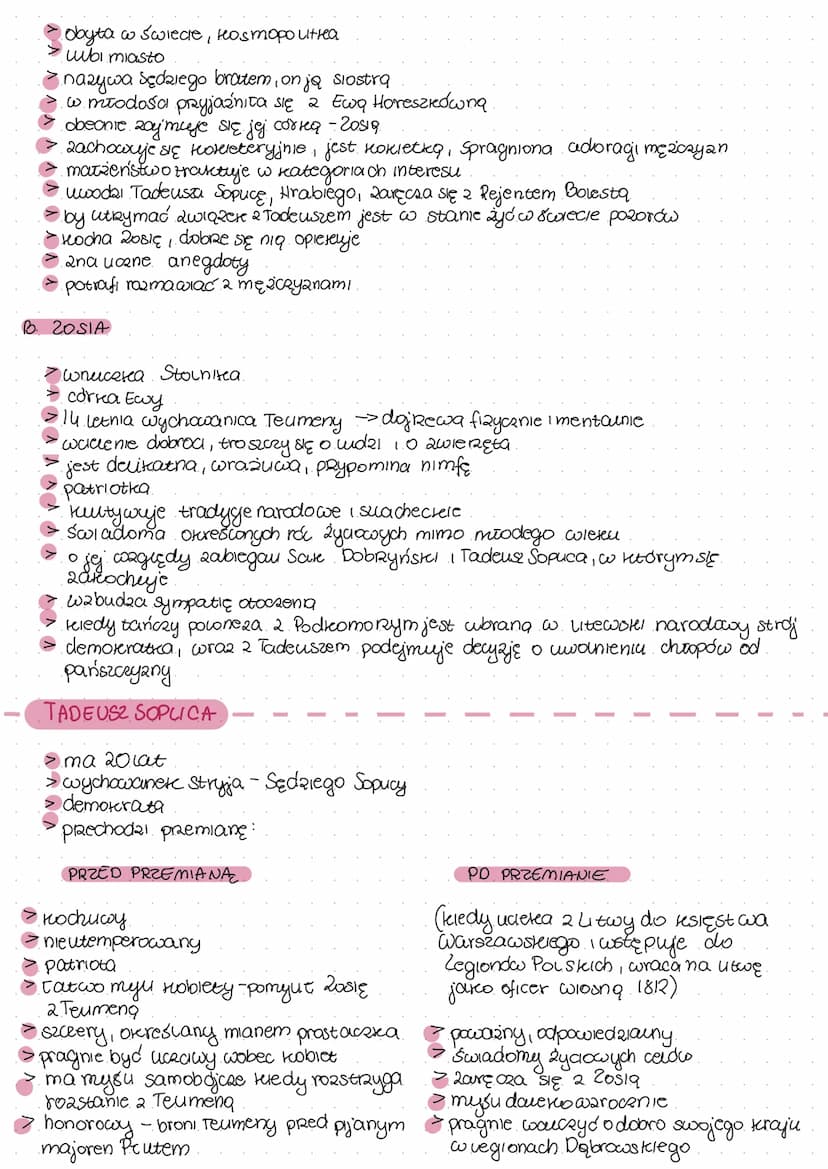 > obyta w świecie, kosmopolitka
> lubi miasto
> nazywa Sędziego bratem, on ją siostrą
> w młodości przyjaźniła się z Ewą Horeszkówną
> obecnie zajmuje się jej córką - Zosią
> zachowuje się kokieteryjnie, jest kokietką, spragniona adoracji mężczyzn
> małżeństwo traktuje w kategoriach interesu
> uwodzi Tadeusza Soplicę, Hrabiego, zaręcza się z Rejentem Bolestą
> by utrzymać związek z Tadeuszem jest w stanie żyć w świecie pozorów
> kocha Zosię, dobrze się nią opiekuje
> zna liczne anegdoty
> potrafi rozmawiać z mężczyznami
B. ZOSIA
> wnuczka Stolnika
> córka Ewy
> 14 letnia wychowanica Telimeny → dojrzewa fizycznie i mentalnie
> wcielenie dobroci, troszczy się o ludzi i o zwierzęta
> jest delikatna, wrażliwa, przypomina nimfę
> patriotka
> kultywuje tradycje narodowe i szlacheckie
> świadoma określonych ról życiowych mimo młodego wieku
> o jej względy zabiegali Sak Dobrzyński i Tadeusz Soplica, w którym się
zakochuje
> wzbudza sympatię otoczenia
> kiedy tańczy poloneza z Podkomorzym jest ubrana w litewski narodowy strój
> demokratka, wraz z Tadeuszem podejmuje decyzję o uwolnieniu chłopów od
pańszczyzny
TADEUSZ SOPLICA
> ma 20 lat
> wychowanek stryja - Sędziego Soplicy
> demokrata
> przechodzi przemianę:
PRZED PRZEMIANĄ
> kochliwy
> nieutemperowany
> patriota
> łatwo myli kobiety - pomylił Zosię
z Telimeną
> szczery, określany mianem prostaczka
> pragnie być uczciwy wobec kobiet
> ma myśli samobójcze kiedy rozstrzyga
rozstanie z Telimeną
> honorowy - broni Telimeny przed pijanym
majorem Płutem
PO PRZEMIANIE
(kiedy ucieka z Litwy do Księstwa
Warszawskiego i wstępuje do
Legionów Polskich, wraca na Litwę
jako oficer wiosną 1812)
> poważny, odpowiedzialny
> świadomy życiowych celów
> zaręcza się z Zosią
> myśli dalekowzrocznie
> pragnie walczyć o dobro swojego kraju
w legionach Dąbrowskiego